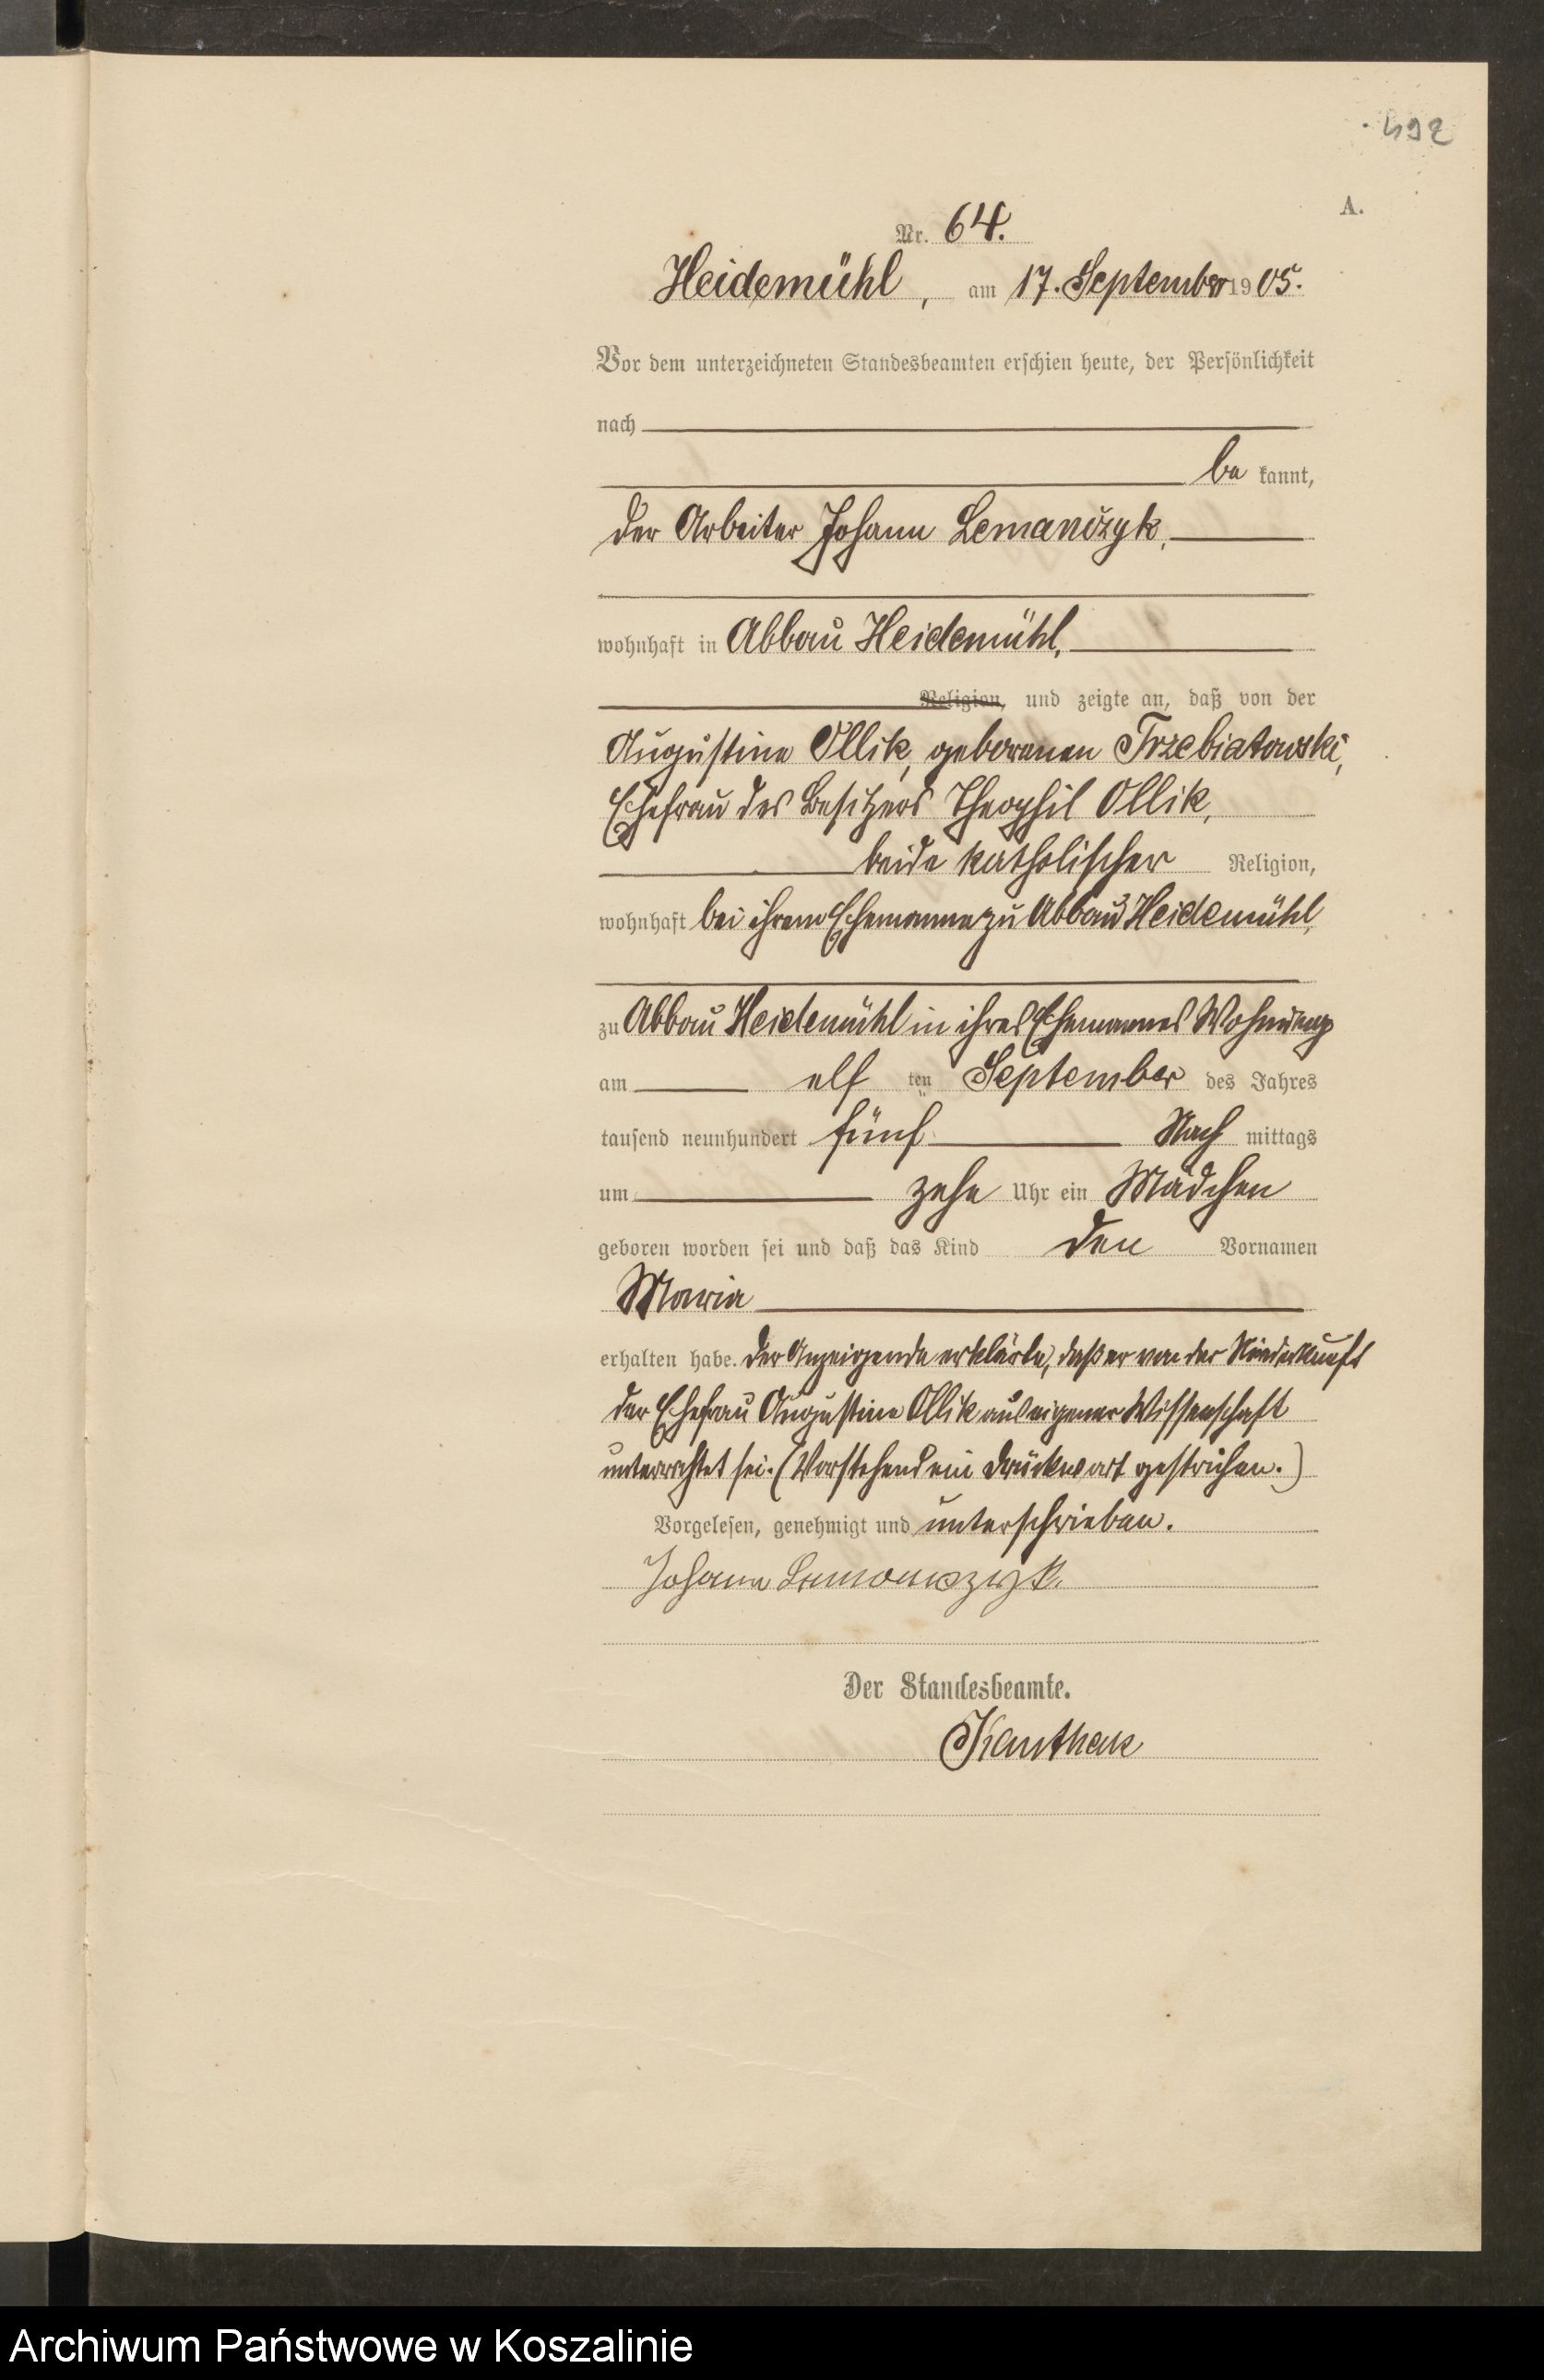 492
A.
Nr. 64.
Heidemühl, am 17. September 1905.
Vor dem unterzeichneten Standesbeamten erschien heute, der Persönlichkeit
nach
be kannt,
der Arbeiter Johann Lemanczyk,
wohnhaft in Abbau Heidemühl,
Religion, und zeigte an, daß von der
Augustine Ollik, geborenen Trzebiatowski,
Ehefrau des Besitzers Theophil Ollik,
beide katholischer Religion,
wohnhaft bei ihrem Ehemanne zu Abbau Heidemühl,
zu Abbau Heidemühl in ihres Ehemannes Wohnung
am elf ten September des Jahres
tausend neunhundert fünf Nach mittags
um zehn Uhr ein Mädchen
geboren worden sei und daß das Kind den Vornamen
Maria
erhalten habe. Der Anzeigende erklärte, daß er von der Niederkunft
der Ehefrau Augustine Ollik aus eigener Wissenschaft
unterrichtet sei. (Vorstehend ein Druckwort gestrichen.)
Vorgelesen, genehmigt und unterschrieben.
Johann Lemanczyk.
Der Standesbeamte.
Kanthak
Archiwum Państwowe w Koszalinie